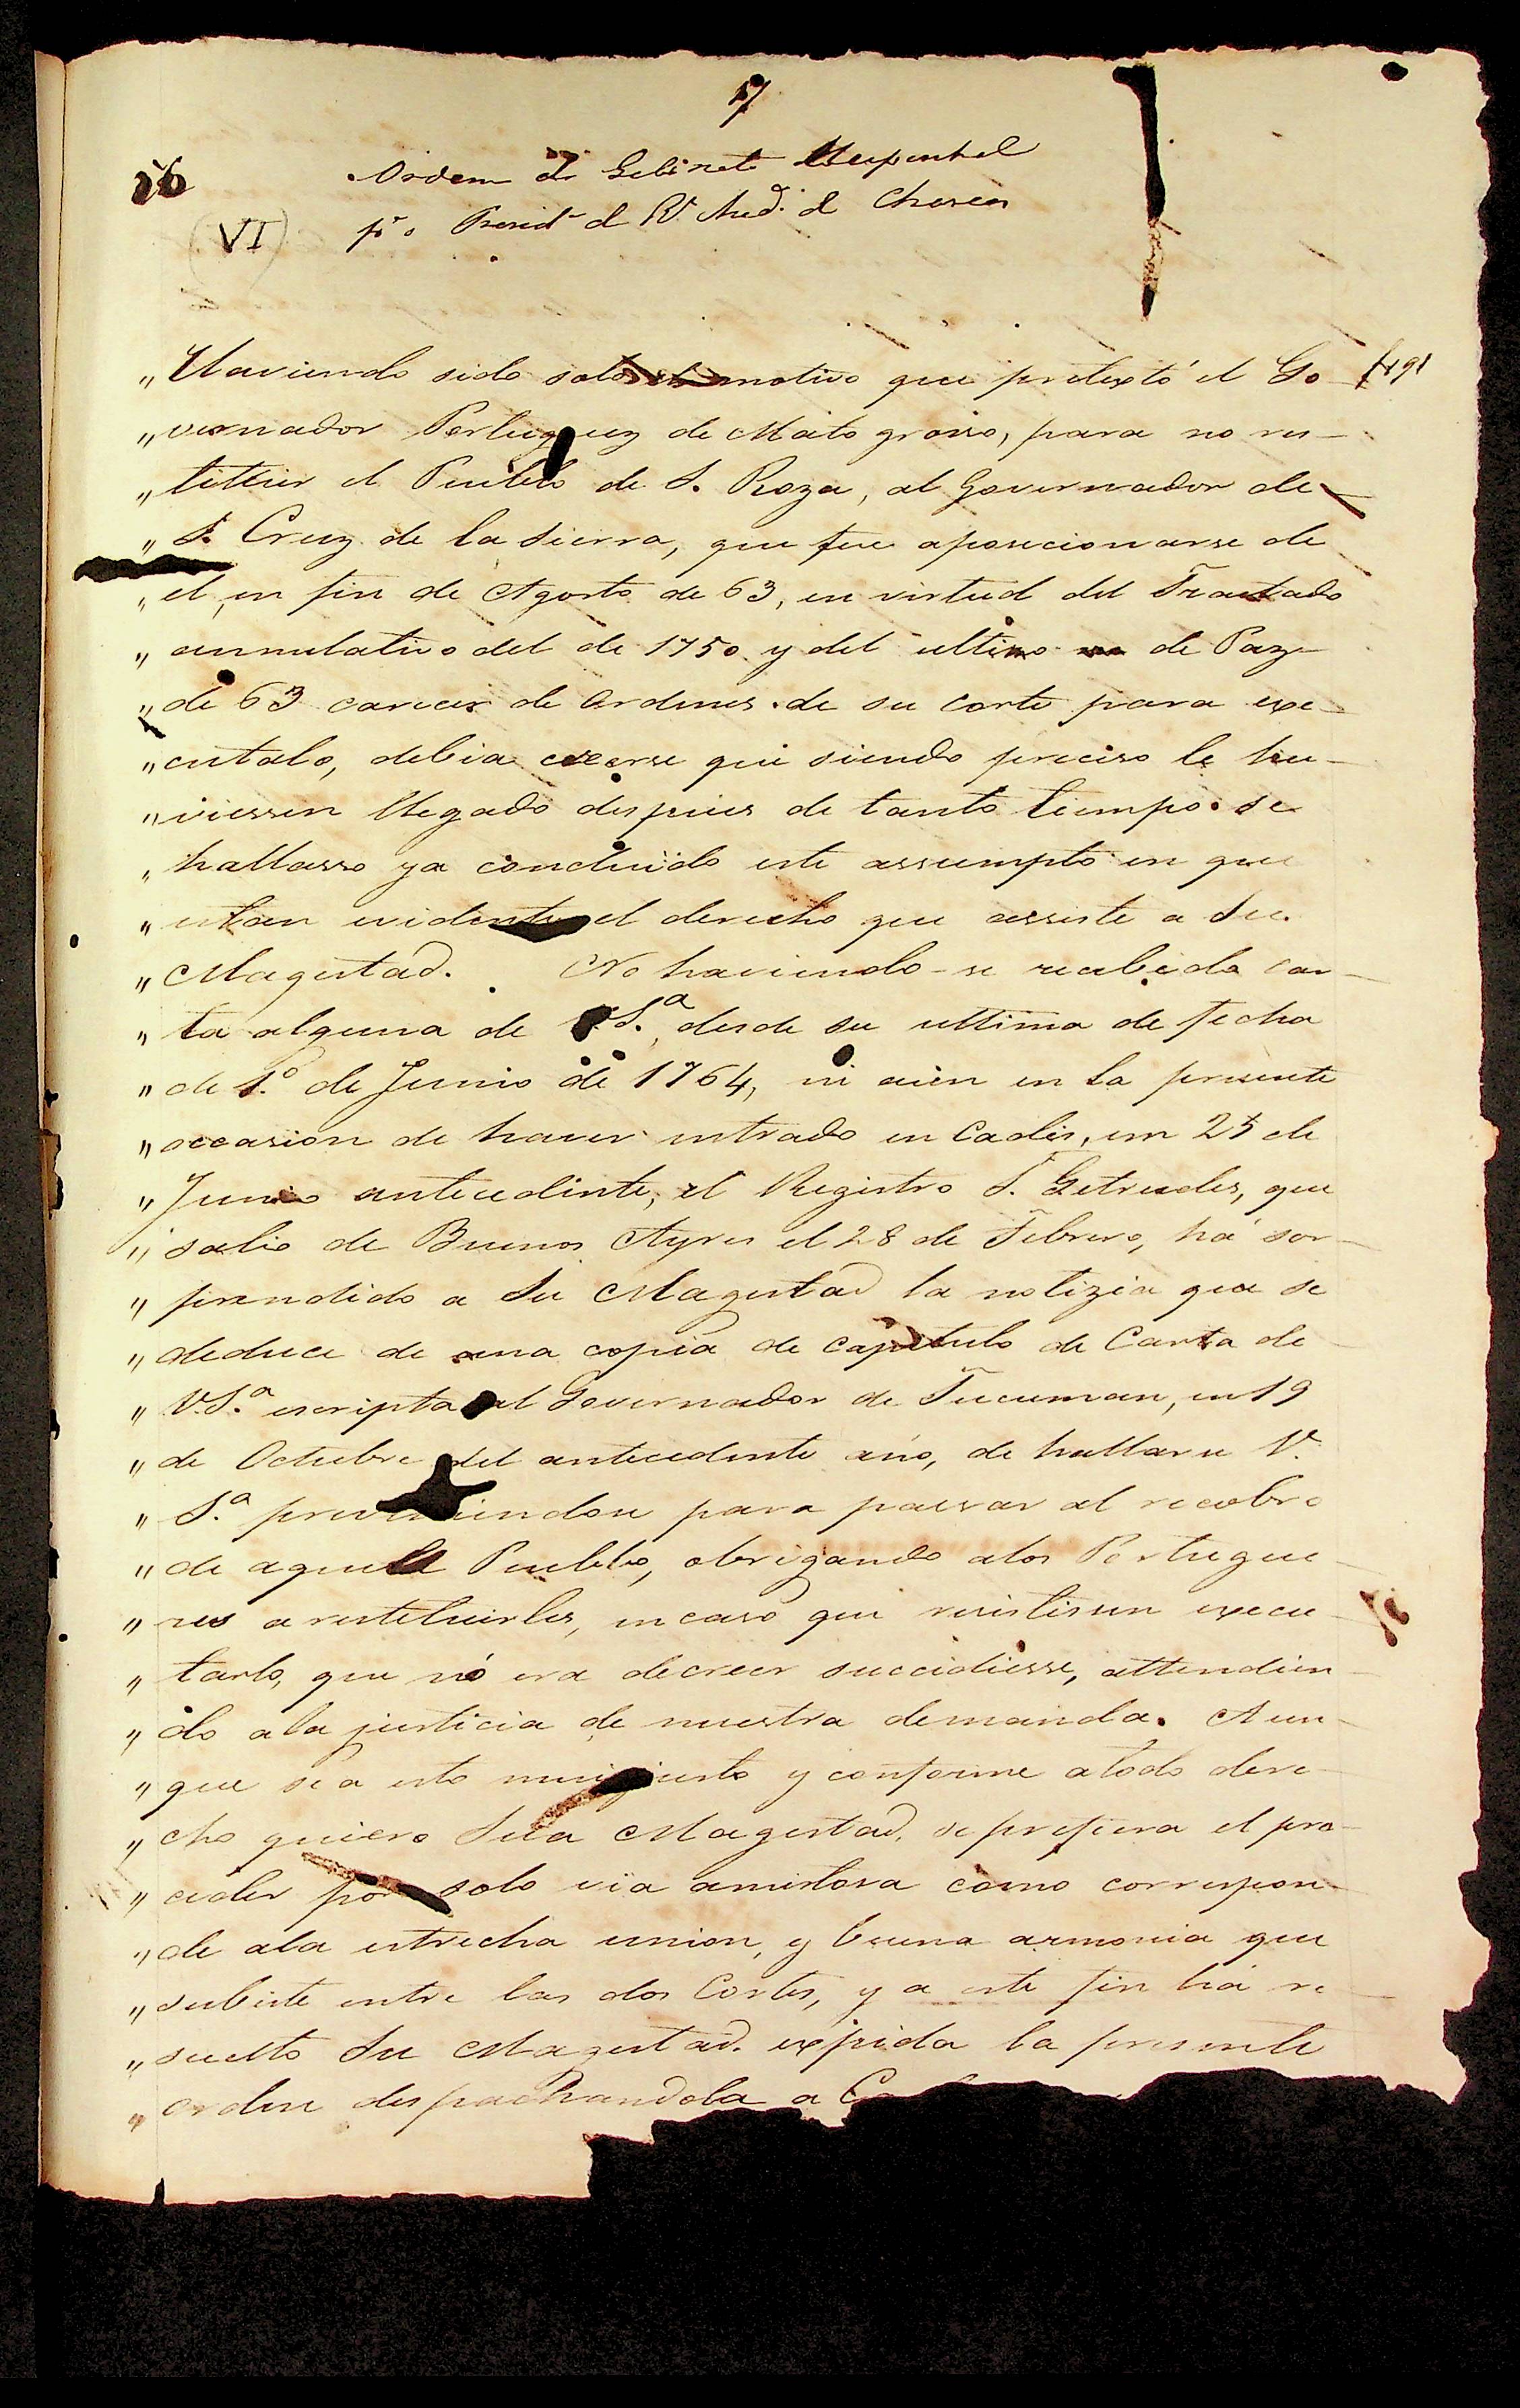 17
56
Ordem do Gabinete Hespanhol
(VI) pª o Presidte d Rl Aud. d Charcas
" Haviendo sido solo el motivo que pretextó el Go- fr 91
" vernador Portuguez de Mato grosso, para no res-
" tittuir el Pueblo de S. Roza, al Governador de
" S. Cruz de la Sierra, que fue aposecionarse de
" el, en fin de Agosto de 63, en virtud del Trautado
" annulativo del de 1750 y del ultimo de Paz
" de 63 carecer de Ordenes de su Corte para exe-
" cutalo, debia creerse que siendo preciso le hu-
" viessen llegado despues de tanto tiempo se
" hallasse ya concluïdo este assumpto en que
" es tan evidente el derecho que assiste a Su
" Magestad. No haviendo-se recebido car-
" ta alguna de V.Sª, desde su ultima de fecha
" de 1º de Junio de 1764, ni aún en la presente
" occasion de haver entrado en Cadis, em 25 de
" Junio antecedente, el Registro S. Getrudes, que
" salio de Buenos Ayres el 28 de Febrero, há sor-
" prendido a Su Magestad la notizia que se
" deduce de una copia de capitulo de Carta de
" V.Sª escripta al Governador de Tucuman, en 19
" de Octubre del antecedente año, de hallarse V.
" Sª previniendose para passar al recobro
" de aquell Pueblo, obrigando alos Portugue-
" ses a restetuirles, en caso que resistissen execu-
" tarlo, que nó era decreer succidiesse, attendien-
" do ala justicia de nuestra demanda. Aun-
" que sea esto mui justo y conforme atodo dere-
" cho quiero Sua Magestad, se prefiera el pro-
" ceder por solo via amistosa como correspon-
" de ala estrecha union, y buena armonia que
" subsiste entre las dos Cortes, y a este fin há re-
" suelto Su Magestad expida la presente
" orden despachandola a